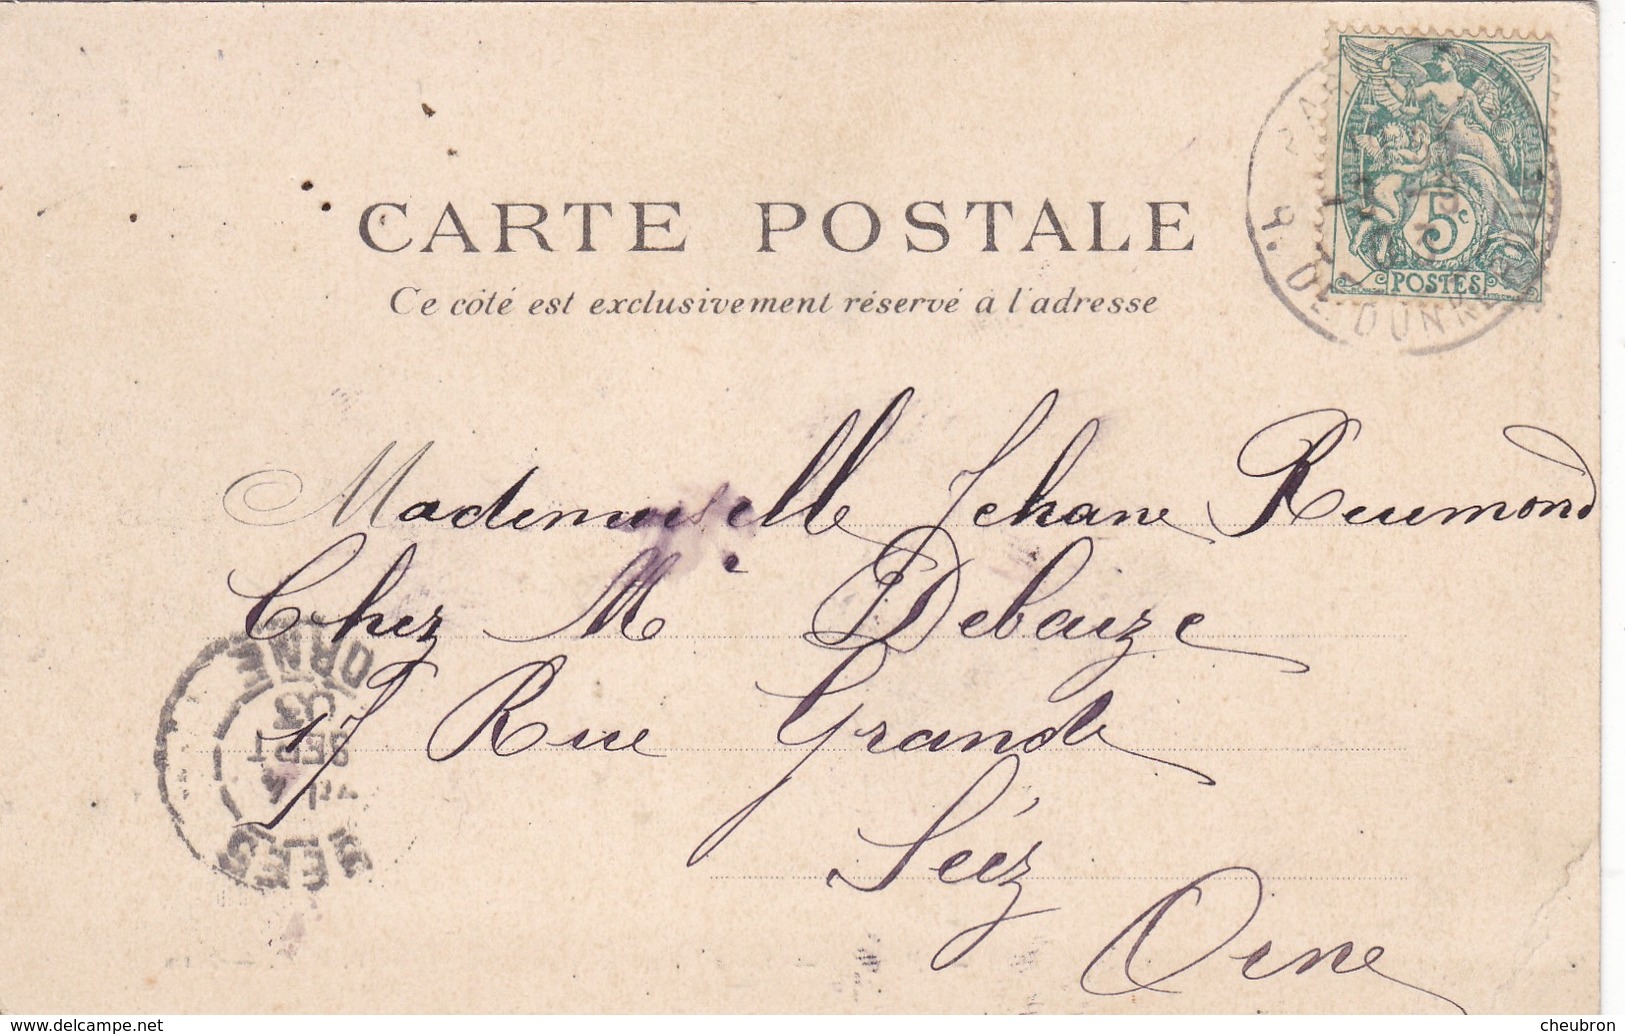 CARTE POSTALE
Ce côté est exclusivement réservé à l'adresse
5c
POSTES
R. DE DUNKE
Mademoiselle Jehane Reumond
Chez Me Debaize
17 Rue Grande
Séez
Orne
ORNE
03
SEPT
4
SEES
delcampe.net
cheubron